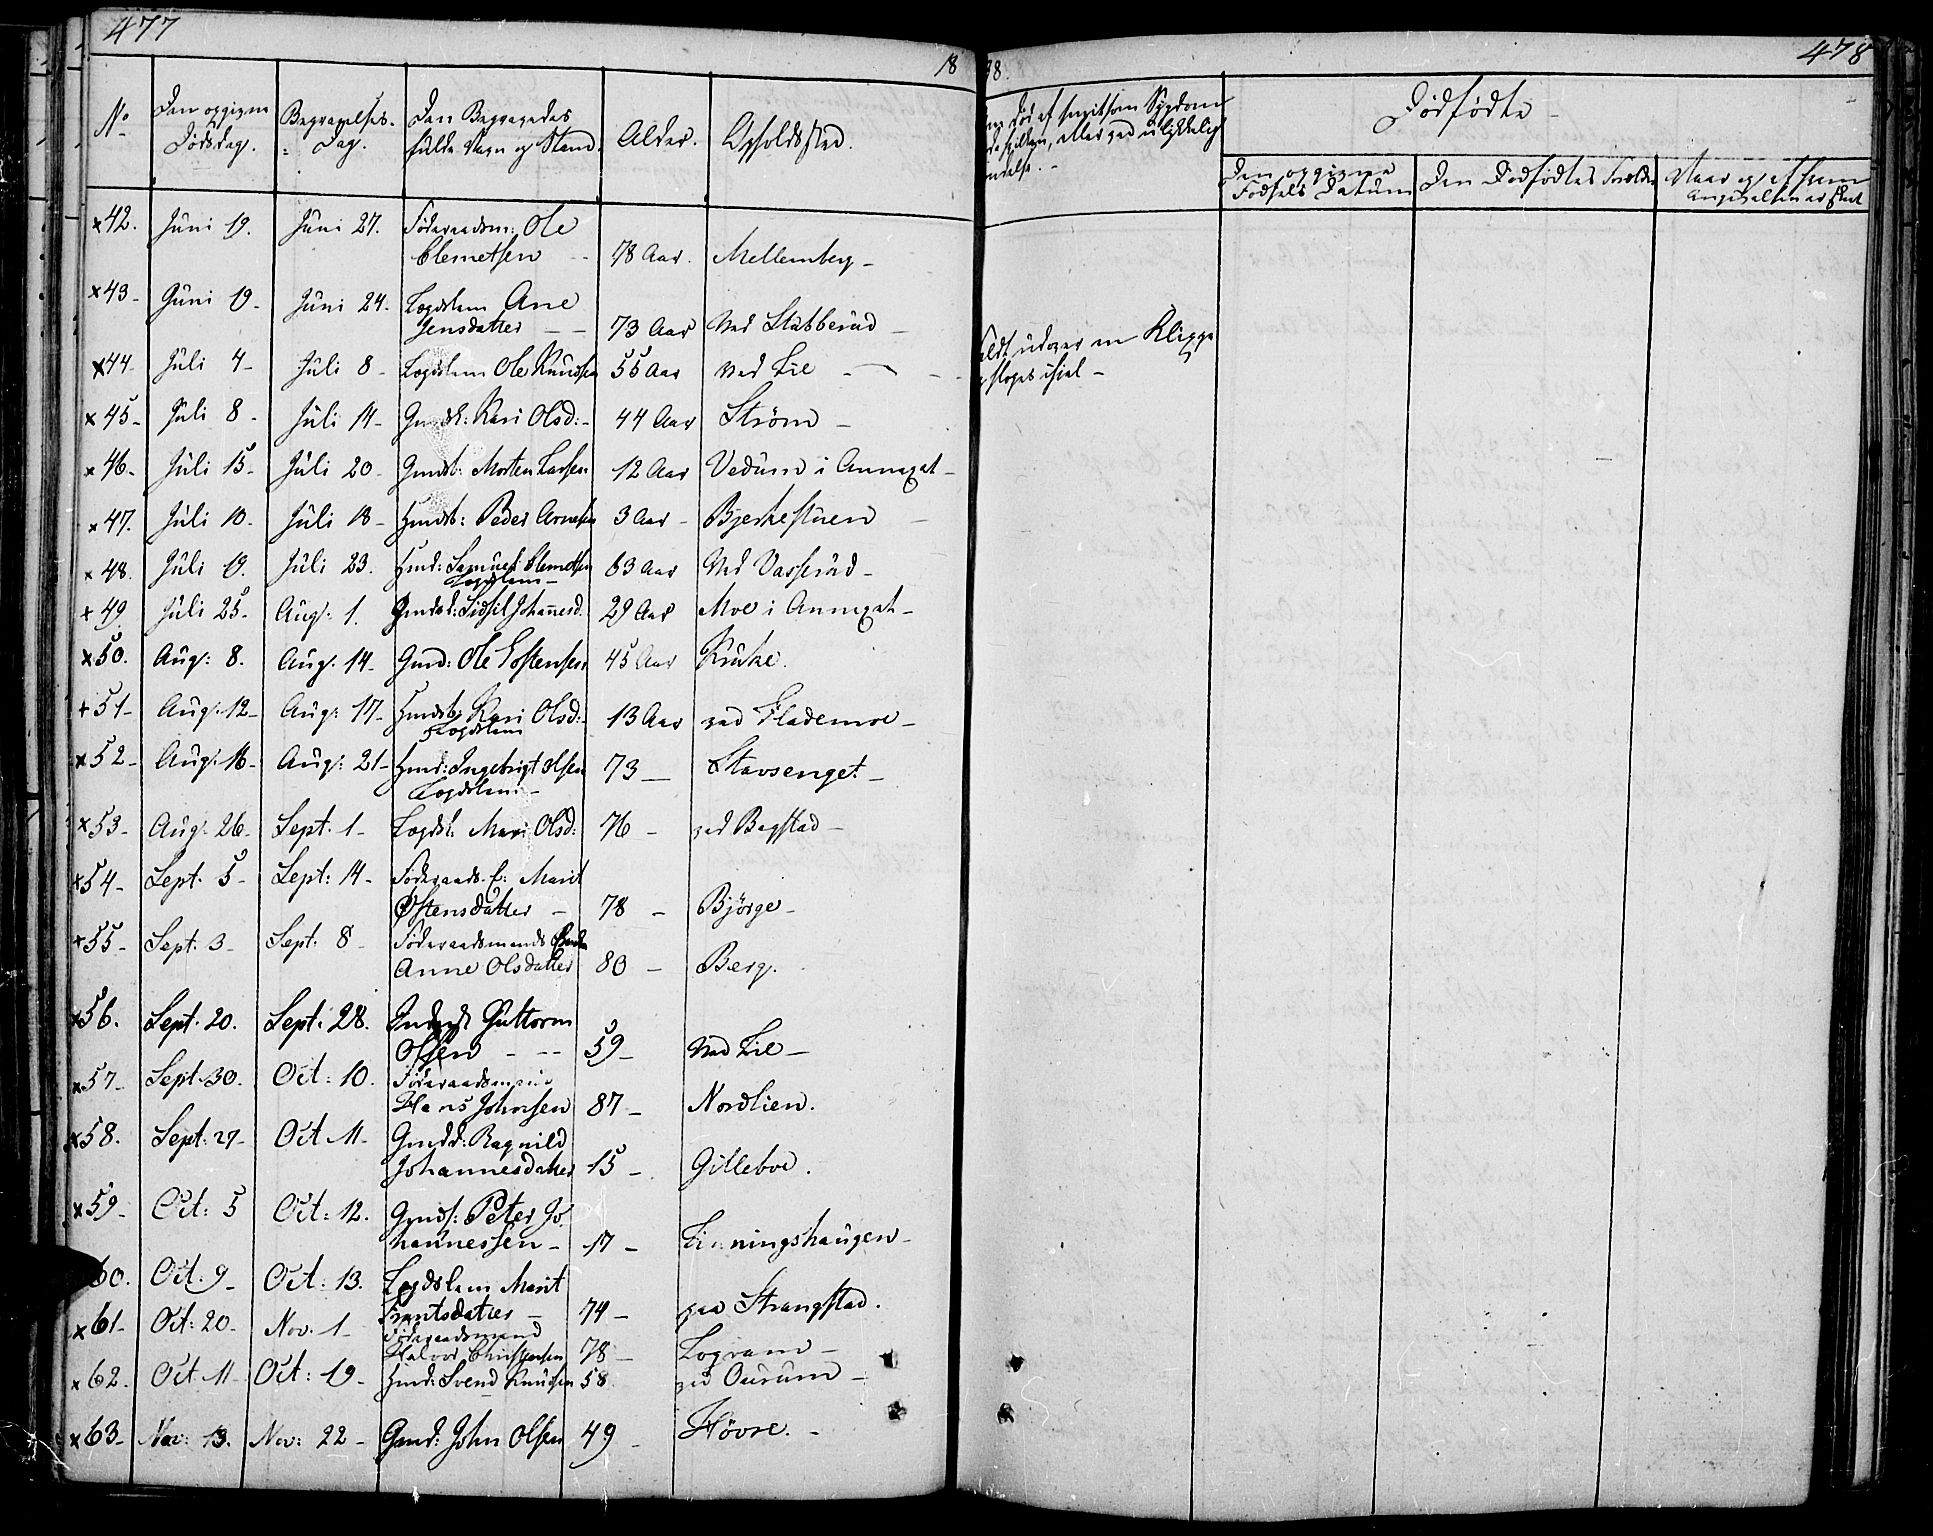 477
18
No
Den opgivne
Dødsdag.
Begravelses-
Dag.
Den Begravedes
fulde Navn og Stand.
Alder.
Opholdssted.
x 42. Juni 19. Juni 27. Føderaadsm: Ole
Clemetsen - 78 Aar. Mellemberg -
x 43- Juni 19- Juni 24. Lægdslem Ane
Jensdatter - - 73 Aar Ved Stabberud -
x 44- Juli 4- Juli 8- Lægdslem Ole Knudsen 55 Aar Ved Lie -
x 45- Juli 8- Juli 14- Kari Olsd:- 44 Aar Strøm -
x 46- Juli 15- Juli 20- Gmds: Morten Larsen 12 Aar Vedum i Annexet-
x 47. Juli 10- Juli 18- Hmds: Peder Arnesen 3 Aar- Bjerkestuen -
x 48. Juli 19. Juli 23. Hmd: Samuel Clemetsen 63 Aar Ved Vasrud-
Lægdslem-
+ 49. Juli 25- Aug: 1. Gmdsd: Sidsil Johannesd. 29 Aar Moe i Annexet-
x 50. Aug: 8. Aug: 14- Gmd: Ole Tostensen 45 Aar Kruke.
+ 51- Aug: 12- Aug: 17- Kari Olsd:- 13 Aar ved Flademoe-
Lægdslem
x 52- Aug: 16- Aug: 21- Hmd: Ingebrigt Olsen 73- Stavsenget-
Lægdslem-
x 53- Aug: 26- Sept. 1- Lægdsl: Mari Olsd: 76- ved Bagstad-
+ 54- Sept. 5- Sept: 14- Føderaads. E: Marit
Østensdatter - 78- Bjørge-
+ 55- Sept: 3- Sept: 8- Føderaadsmands Enke
Anne Olsdatter 80- Berg.
x 56. Sept. 20. Sept: 28. Guttorm
Olsen - -- 59- Ved Lie-
x 57- Sept. 30. Oct: 10. Føderaadsmand
Hans Johnsen 87- Nordlien.
x 58. Sept: 27- Oct 11- Gmdd: Ragnild
Johannesdatter 15- Gilleboe.
x 59- Oct: 5 Oct: 12. Gmds: Peter Jo-
hannessen- 17- Linningshaugen-
60. Oct: 9- Oct: 13. Lægdslem Marit
Frantsdatter - 74- paa Strangstad.
x 61- Oct: 20- Nov. 1- Føderaadsmand
Halvor Christensen 78- Logram-
x 62. Oct 11- Oct: 19- Hmd: Svend Knudsen 58. Ourum-
x 63- Nov: 13. Nov: 22- Gmd: John Olsen 49- Høvre.-
478
38.
død af smitsom Sygdom
eller ved ulykkelig
Dødfødte
Den opgivne
Fødsels Datum
Den Dødfødtes Forældre
Naar og af hvem
Anmeldelsen er skeet
udover en Klippe
sloges ihjel -